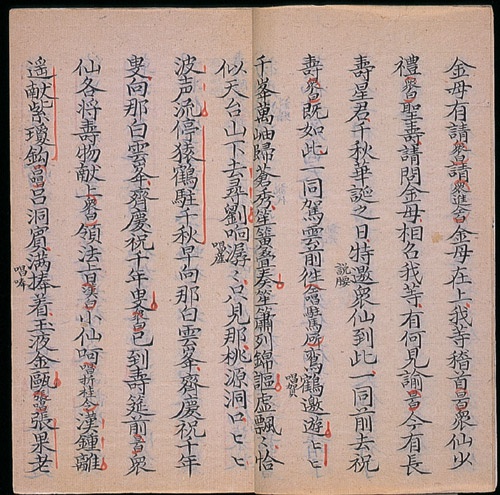 金母有請衆請衆進金金母在上我等稽首衆仙少
禮衆聖壽請問金母相名我等有何見諭今有長
壽星君千秋華誕之日特邀衆仙到此一同前去祝
壽衆既如此一同駕雲前往鶴邀遊
千峯萬岫歸蒼秀笙簧奏笙簫列錦謳虛飄〻恰
似天台山下去尋劉响潺〻只見那桃源洞口
波声流停猿鶴駐千秋早向那白雲峯齊慶祝千年
叟向那白雲峯齊慶祝千年叟衆已到壽筵前衆
仙各将壽物献上衆領法旨小仙呵漢鍾離
遥献紫瓊鈎呂呂洞賓满捧着玉液金甌張張果老